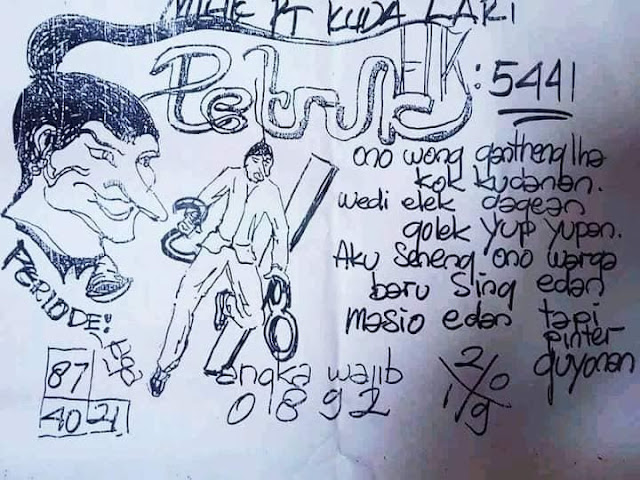 PT KUDA LARI
Petruk
FTK: 5441
ono wong gantheng lha
kok kudanan.
wedi elek dagean
golek yup yupan.
Aku Seneng ono warga
baru sing edan
masio edan tapi
pinter
guyonan
PERIODE!
87
40 21
angka wajib
0 8 9 2
2 0
1 9